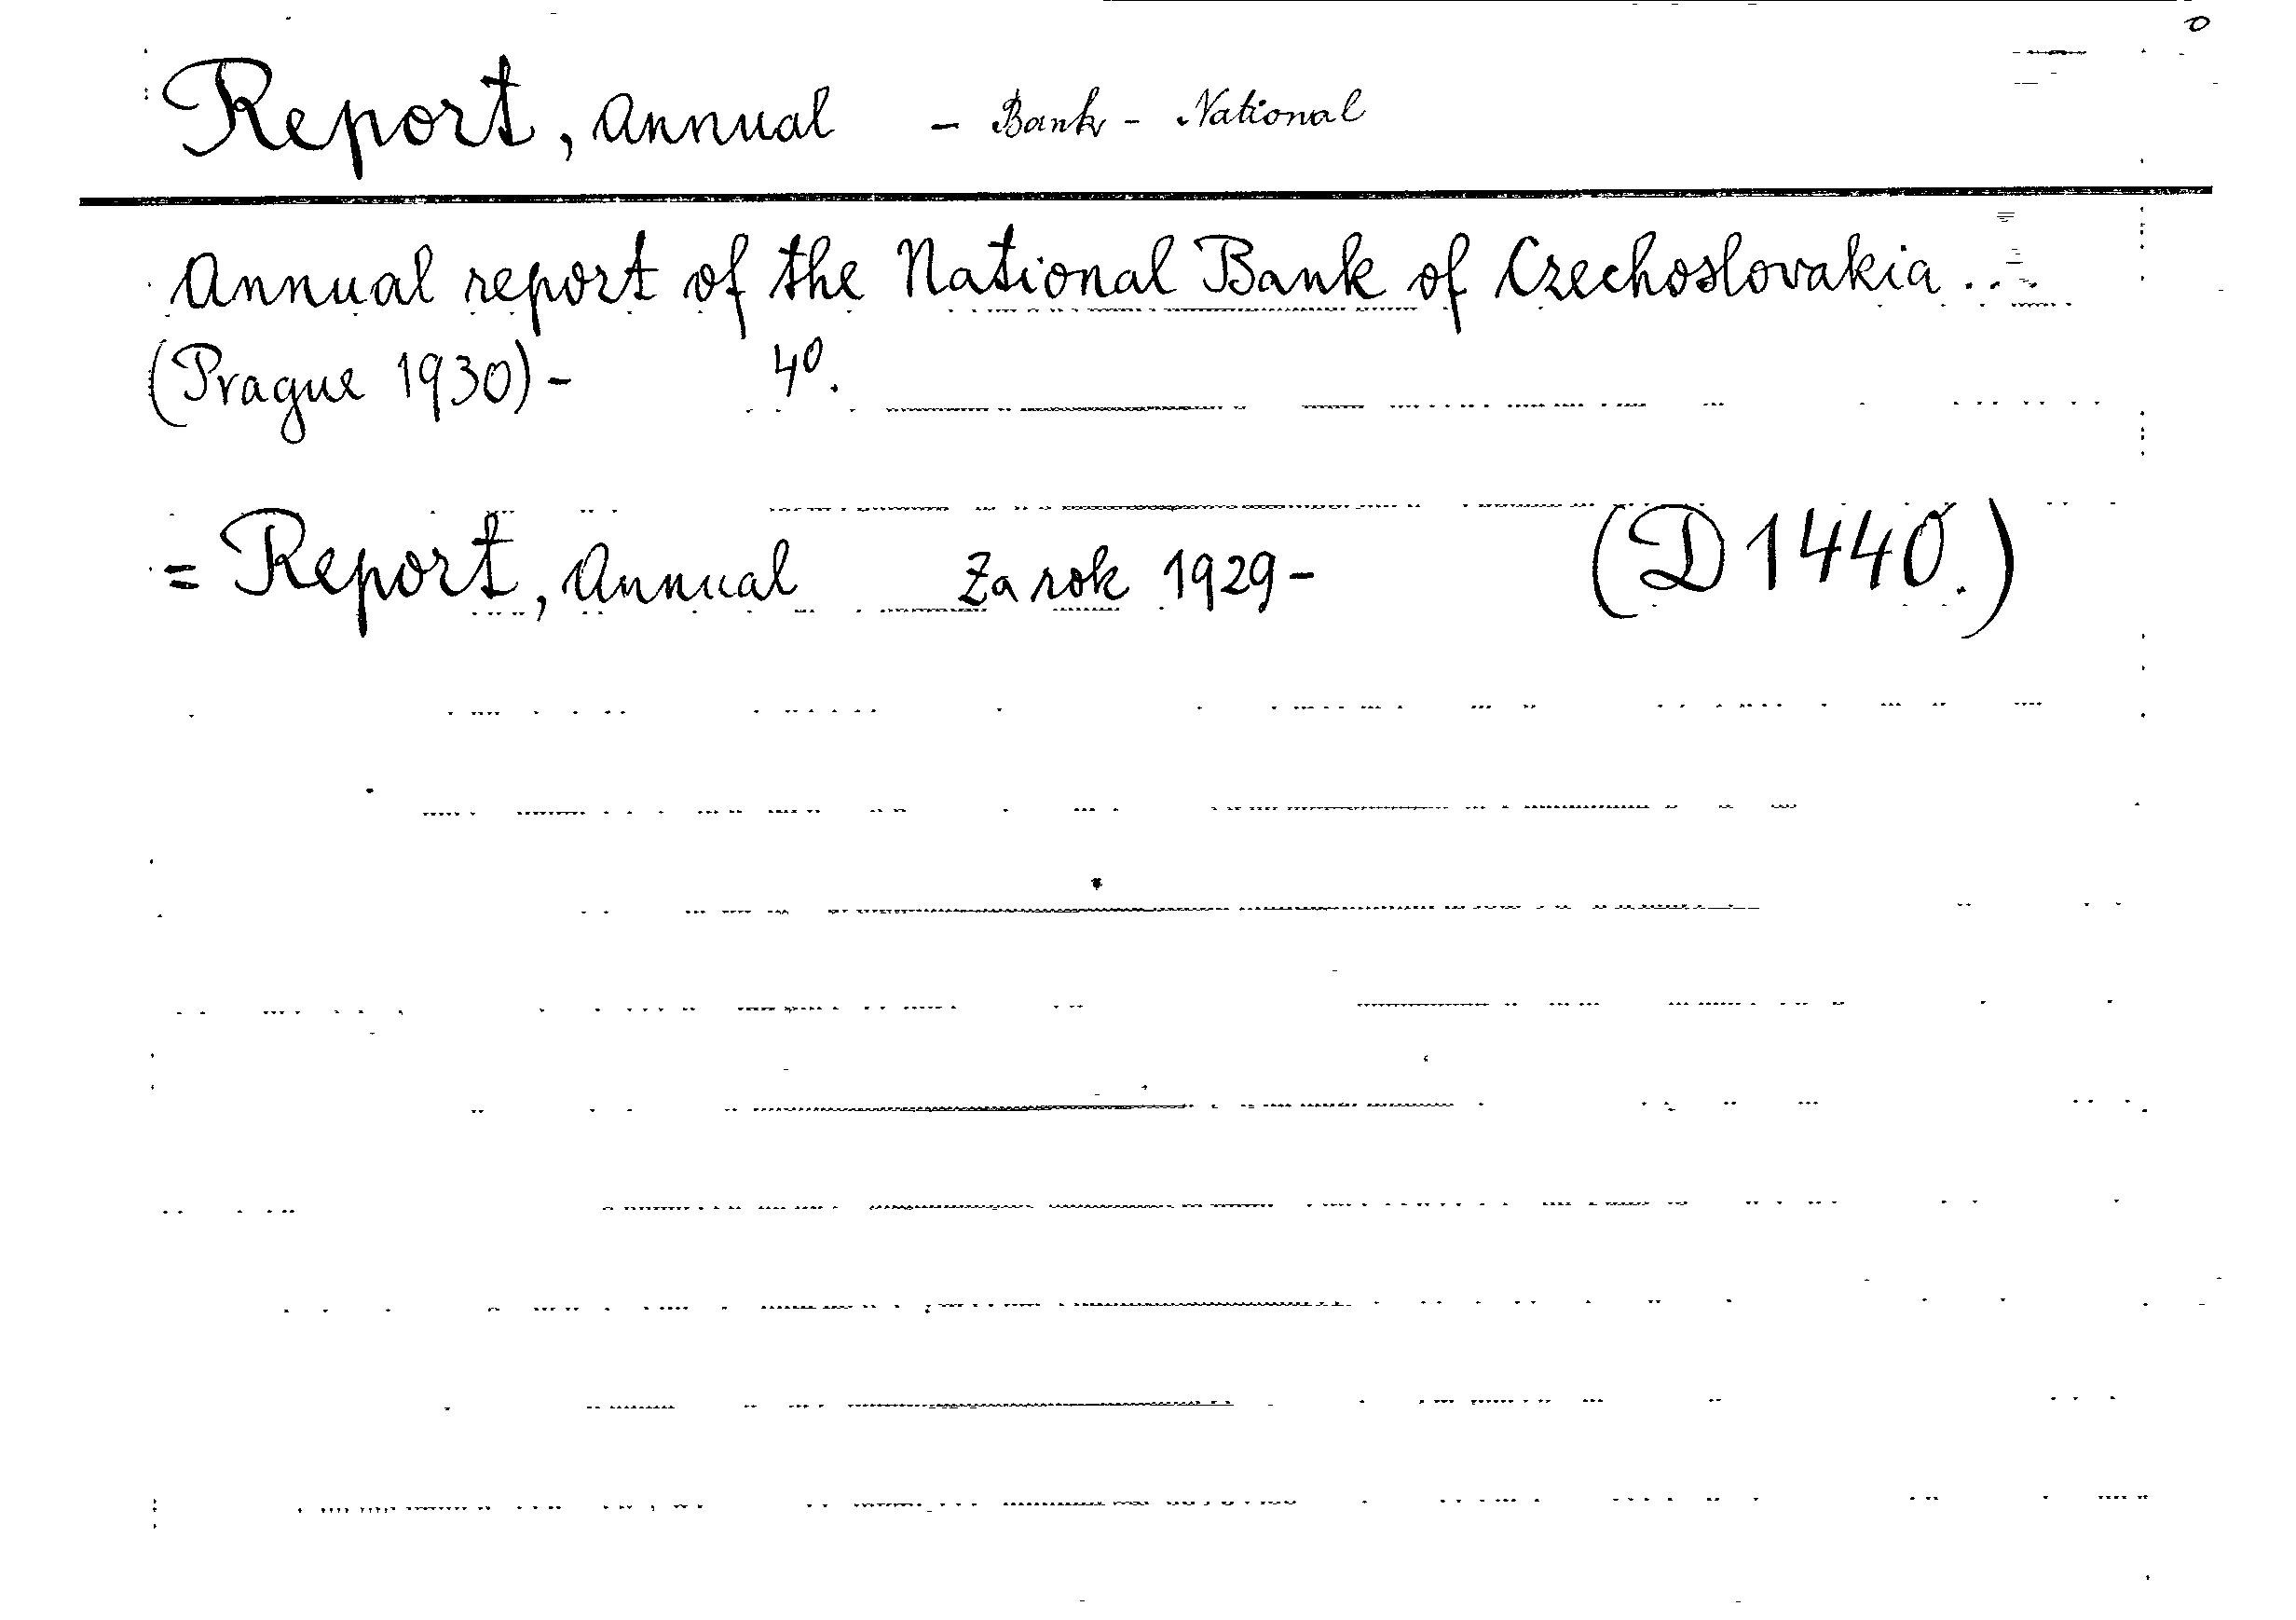 Report, Annual - Bank - National
Annual report of the National Bank of Czechoslovakia...
(Prague 1930)- 4°.
= Report, Annual Za rok 1929- (D 1440.)